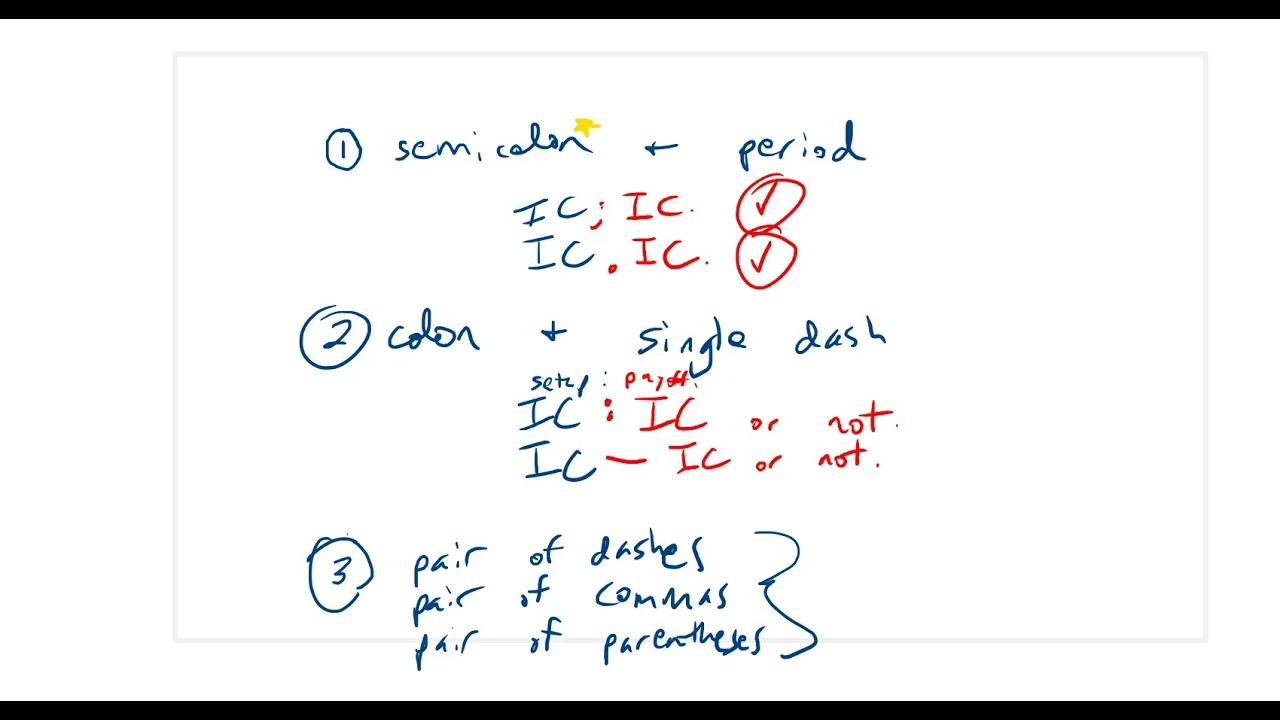 ① semicolon + period
IC; IC. ✓
IC. IC. ✓
② colon + single dash
setup: payoff.
IC: IC or not.
IC — IC or not.
③ pair of dashes
pair of commas
pair of parentheses